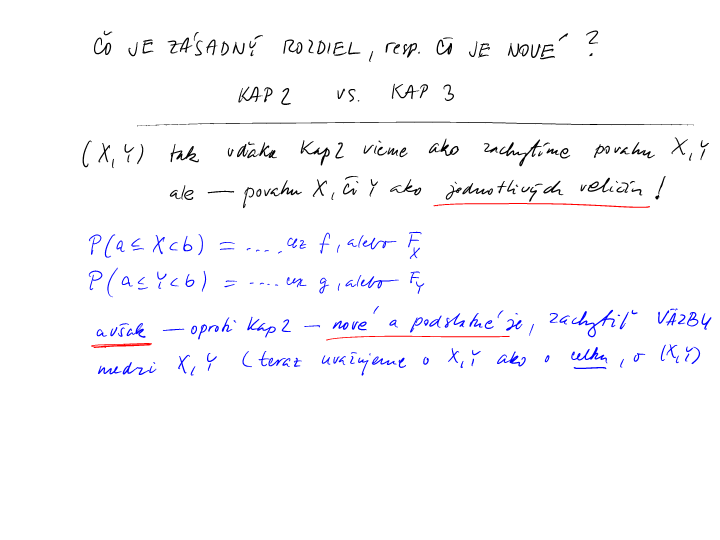 ČO JE ZÁSADNÝ ROZDIEL, resp. ČO JE NOVÉ?
KAP 2 vs. KAP 3
(X,Y) tak vďaka Kap2 vieme ako zachytíme povahu X,Y
ale — povahu X, či Y ako jednotlivých veličín!
P(a ≤ X < b) = .... cez f, alebo F_X
P(a ≤ Y < b) = .... cez g, alebo F_Y
avšak — oproti Kap2 — nové a podstatné je, zachytiť VÄZBU
medzi X, Y (teraz uvažujeme o X,Y ako o celku, o (X,Y)